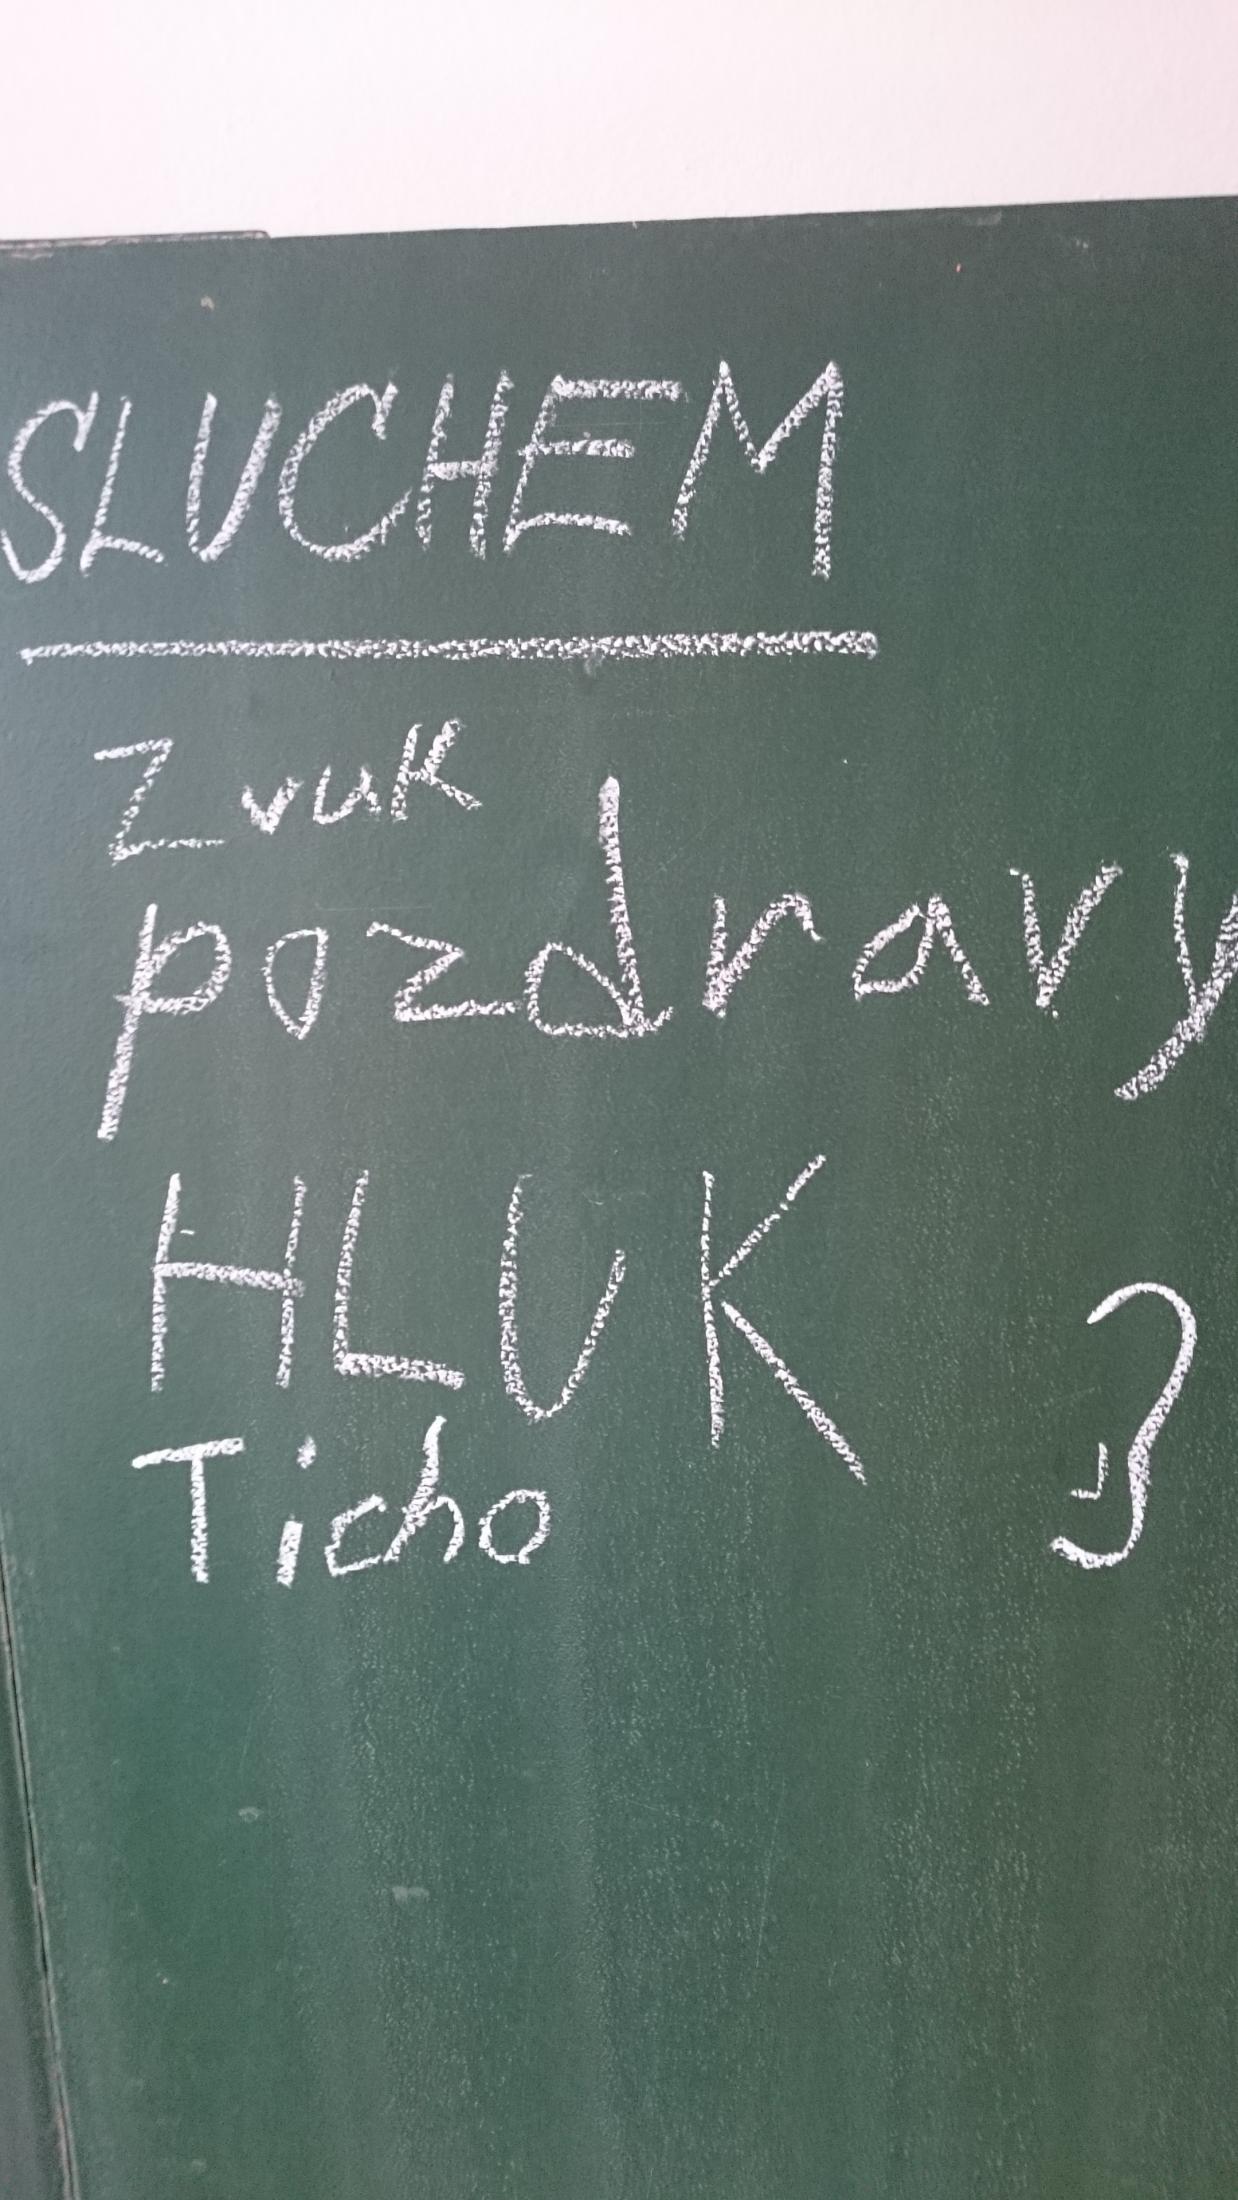 SLUCHEM
Zvuk
pozdravy
HLUK
Ticho